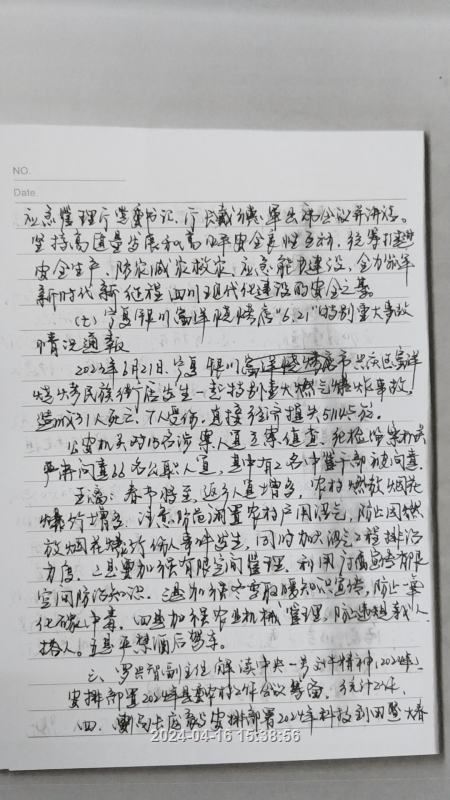 NO.
Date.
应急管理厅党委书记、厅长戴德军出席会议并讲话。
坚持高质量发展和高水平安全良性互动，统筹打进
安全生产、防灾减灾救灾、应急能力建设，全力筑牢
新时代新征程四川现代化建设的安全之基。
(七)宁夏银川富洋烧烤店"6.21"特别重大事故
情况通报
6月21日，宁夏银川市兴庆区富洋
烧烤民族街店发生一起特别重大燃气爆炸事故，
造成31人死亡，7人受伤，直接经济损失5114.5万。
公安机关对15名涉案人员立案侦查，纪检监察机关
严肃问责 名公职人员，其中有2名中管干部被问责。
春节将至，返乡人员增多，农村燃放烟花
爆竹增多，注意防范闲置农村户用沼气，防止因燃
放烟花爆竹伤人事件发生，同时加大沼气工程排治
力度。二是要加强有限空间管理，利用 宣传有限
空间防治知识。三是加强冬季取暖知识宣传，防止一氧
化碳中毒。四是加强农业机械管理，防止违规载人
搭人。五是严禁酒后驾车。
三、罗共智副主任解读中央一号文件精神，
安排部署2024年县农村工作会议筹备，
四、 安排部署2024年科技 大春
2024-04-16 15:38:56